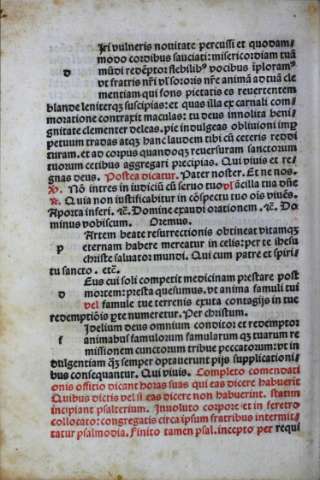 Iri vulneris nouitate percussi et quodam/
modo cordibus sauciati: misericordiam tuā
d mūdi redēptor flebilibꝰ vocibus iploramꝰ
vt fratris nr̄i vl sororis nr̄e animā ad tuā cle
mentiam qui fons pietatis es reuertentem
blande leniterqꝫ suscipias: et quas illa ex carnali com
moratione contraxit maculas: tu deus innolita beni
gnitate clementer deleas. pie indulgeas obliuioni imp
petuum tradas atqꝫ hanc laudem tibi cū ceteris reddi
turam. et ad corpus quandoqꝫ reuersuram sanctorum
tuorum cetibus aggregari precipias. Qui viuis et re/
gnas deus. Postea dicatur. Pater noster. Et ne nos.
℣. Nō intres in iudiciū cū seruo tuo vl ācilla tua dn̄e
℟. Quia non iustificabitur in cōspectu tuo oīs viuēs.
A porta inferi. ⁊c. Domine exaudi orationem. ⁊c. Do
minus vobiscum. Oremus.
Artem beate resurrectionis obtineat vitamqꝫ
p eternam habere mereatur in celis: per te ihesu
christe saluator mundi. Qui cum patre et spiri/
tu sancto. etc̄.
Eus cui soli competit medicinam prestare post
d mortem: presta quesumus. vt anima famuli tui
vel famule tue terrenis exuta contagijs in tue
redemptiōis pte numeretur. Per christum.
Idelium deus omnium conditor et redemptor
f animabus famulorum famularum qꝫ tuarum re
missionem cunctorum tribue peccatorum: vt in
dulgentiam qꝫ semper optauerunt pijs supplicationi/
bus consequantur. Qui viuis. Completo comendati
onis offitio dicant horas suas qui eas dicere habuerit
Quibus dictis vel si eas dicere non habuerint. statim
incipiant psalterium. Inuoluto corpore et in feretro
collocato: congregatis circa ipsum fratribus intermit/
tatur psalmodia. Finito tamen psal. incepto per requi